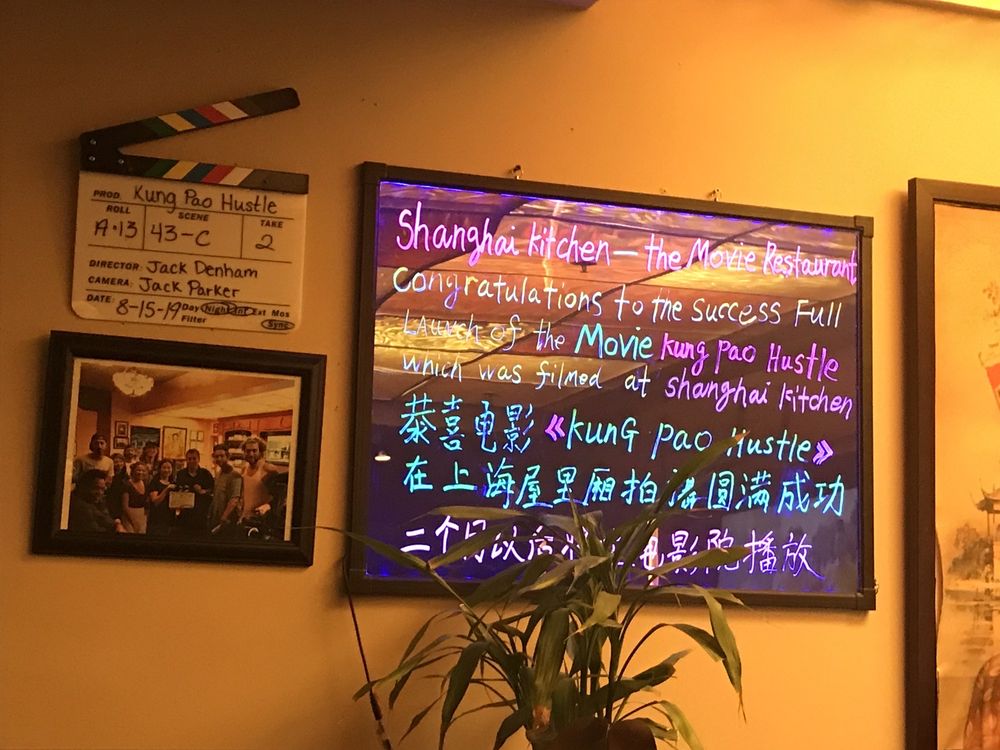 PROD. Kung Pao Hustle
ROLL SCENE TAKE
A·13 43-C 2
DIRECTOR: Jack Denham
CAMERA: Jack Parker
DATE: 8-15-19 Day Night Int Ext Mos
Filter Sync
Shanghai Kitchen — the Movie Restaurant
Congratulations to the success Full
Launch of the Movie kung pao Hustle
which was filmed at shanghai kitchen
恭喜电影《kunG pao Hustle》
在上海屋里厢拍摄圆满成功
二个月以后 电影院播放